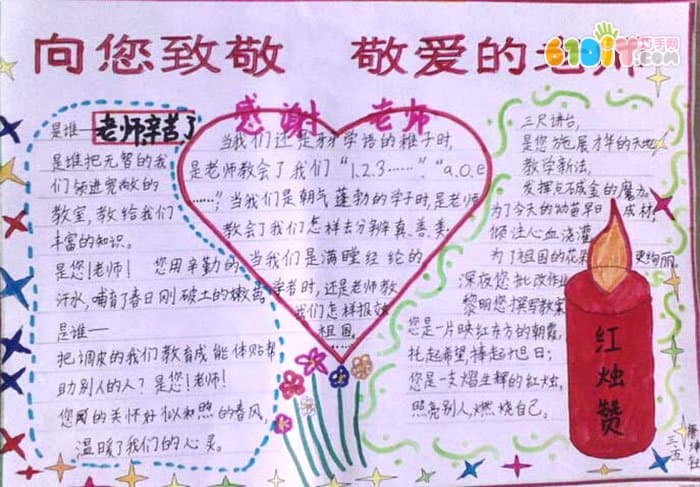 向您致敬 敬爱的老师
61diy 巧手网
.com
感谢 老师
是谁—老师辛苦了
是谁把无智的我
们领进宽敞的
教室,教给我们
丰富的知识。
是您!老师! 您用辛勤的
汗水,哺育了春日刚破土的嫩苗
是谁—
把调皮的我们教育成能体贴帮
助别人的人?是您!老师!
您的关怀好似和煦的春风,
温暖了我们的心灵。
当我们还是牙牙学语的稚子时,
是老师教会了我们“1.2.3……”“a.o.e
……”当我们是朝气蓬勃的学子时,是老师
教会了我们怎样去分辨真、善、美
当我们是满膛经纶的
学者时,还是老师教
我们怎样报效
祖国。
……
三尺讲台,
是您施展才华的天地
教学新法,
发挥点石成金的魔力。
为了今天的幼苗早日成材,
倾注心血浇灌
为了祖国的花朵 更绚丽。
深夜您批改作业
黎明您撰写教案
您是一片映红东方的朝霞,
托起希望捧起旭日;
您是一支熠生辉的红烛,
照亮别人,燃烧自己。
红烛赞
三.五